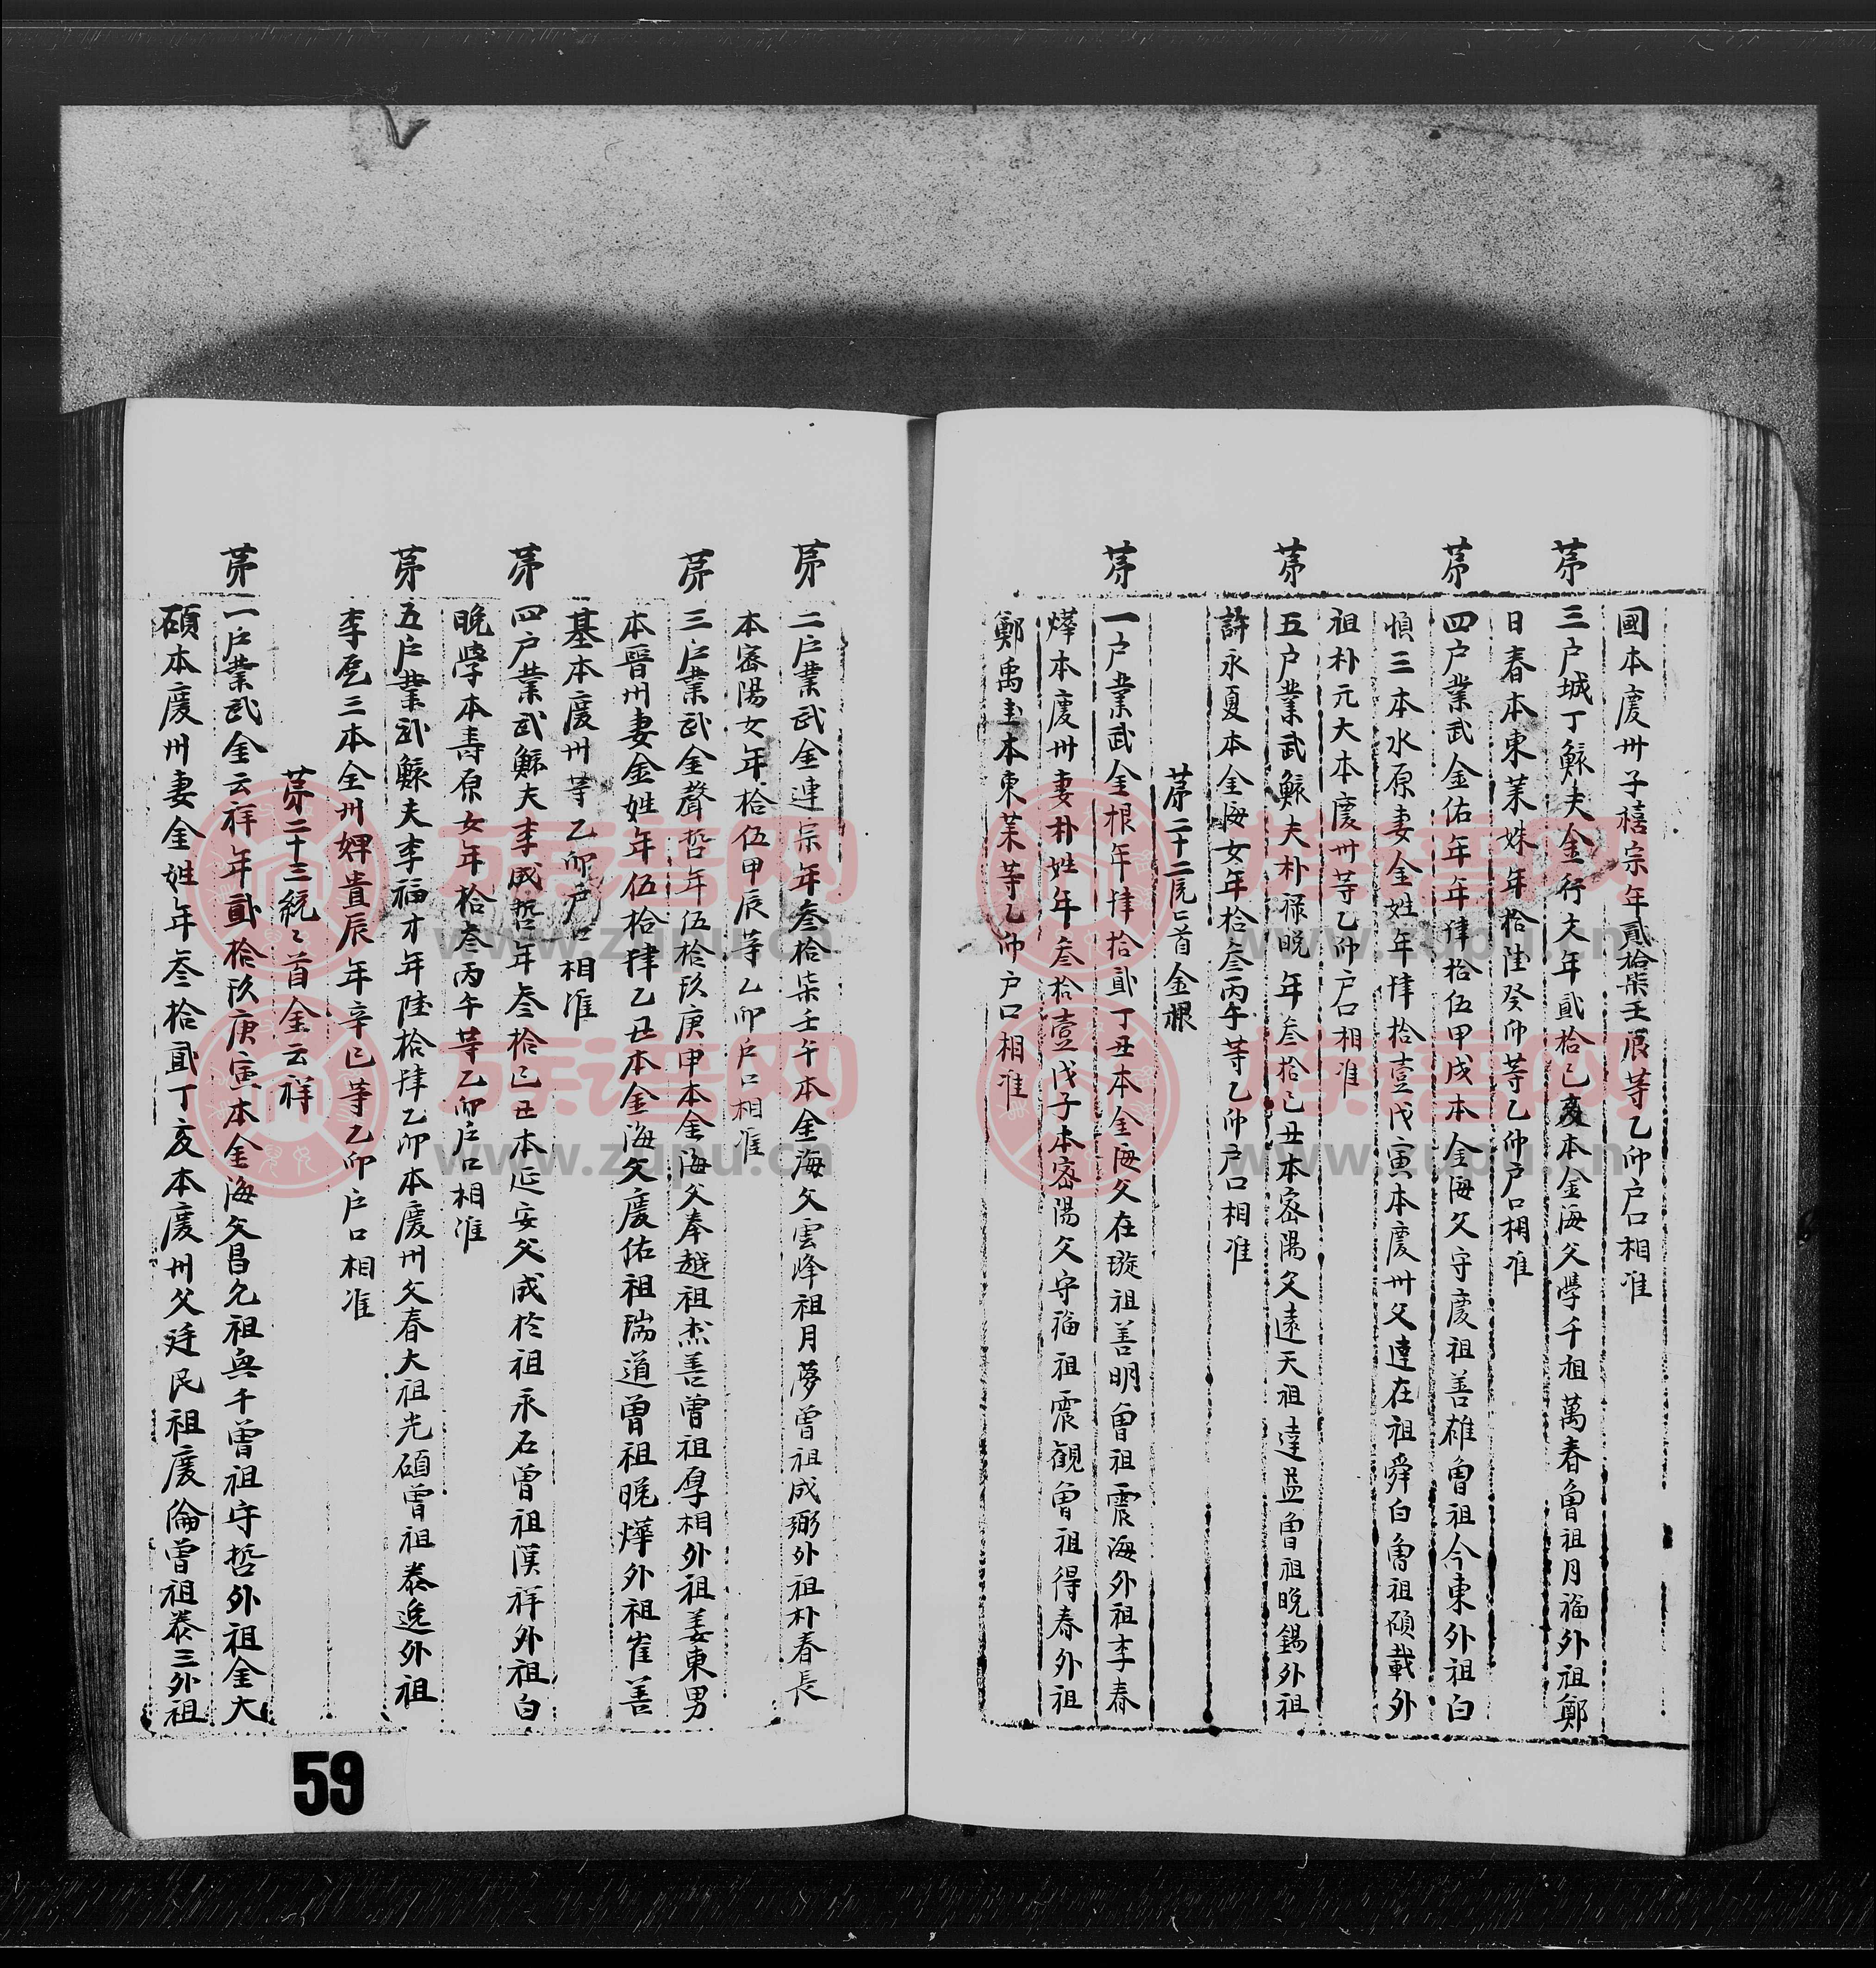 國本慶州子禧宗年貳拾柒壬辰等乙卯戶口相准
第三戶城丁鰥夫金行大年貳拾己亥本金海父學千祖萬春曾祖月福外祖鄭
日春本東萊姝年拾陸癸卯等乙卯戶口相准
第四戶業武金佑年年肆拾伍甲戌本金海父守慶祖善雄曾祖今東外祖白
慎三本水原妻金姓年肆拾壹戊寅本慶州父達在祖舜白曾祖碩載外
祖朴元大本慶州等乙卯戶口相准
第五戶業武鰥夫朴祿晚年叁拾己丑本密陽父遠天祖達孟曾祖晚錫外祖
許永夏本金海女年拾叁丙午等乙卯戶口相准
第二十二統統首金根
第一戶業武金根年肆拾貳丁丑本金海父在璇祖善明曾祖震海外祖李春
燁本慶州妻朴姓年叁拾壹戊子本密陽父守福祖震觀曾祖得春外祖
鄭禹圭本東萊等乙卯戶口相准
第二戶業武金連宗年叁拾柒壬午本金海父雲峰祖月夢曾祖成弼外祖朴春長
本密陽女年拾伍甲辰等乙卯戶口相准
第三戶業武金聲哲年伍拾玖庚申本金海父奉越祖杰善曾祖厚相外祖姜東男
本晉州妻金姓年伍拾肆乙丑本金海父慶佑祖瑞道曾祖晚燁外祖崔善
基本慶州等乙卯戶口相准
第四戶業武鰥夫李成哲年叁拾己丑本延安父成於祖永石曾祖漢祥外祖白
晚學本壽原女年拾叁丙午等乙卯戶口相准
第五戶業武鰥夫李福才年陸拾肆乙卯本慶州父春大祖光碩曾祖泰逸外祖
李 三本全州婢貴辰年辛巳等乙卯戶口相准
第二十三統〻首金云祥
第一戶業武金云祥年貳拾玖庚寅本金海父昌允祖興千曾祖守哲外祖金大
碩本慶州妻金姓年叁拾貳丁亥本慶州父廷民祖慶倫曾祖泰三外祖
59
族谱网
www.zupu.cn
族谱网
www.zupu.cn
族谱网
www.zupu.cn
族谱网
www.zupu.cn